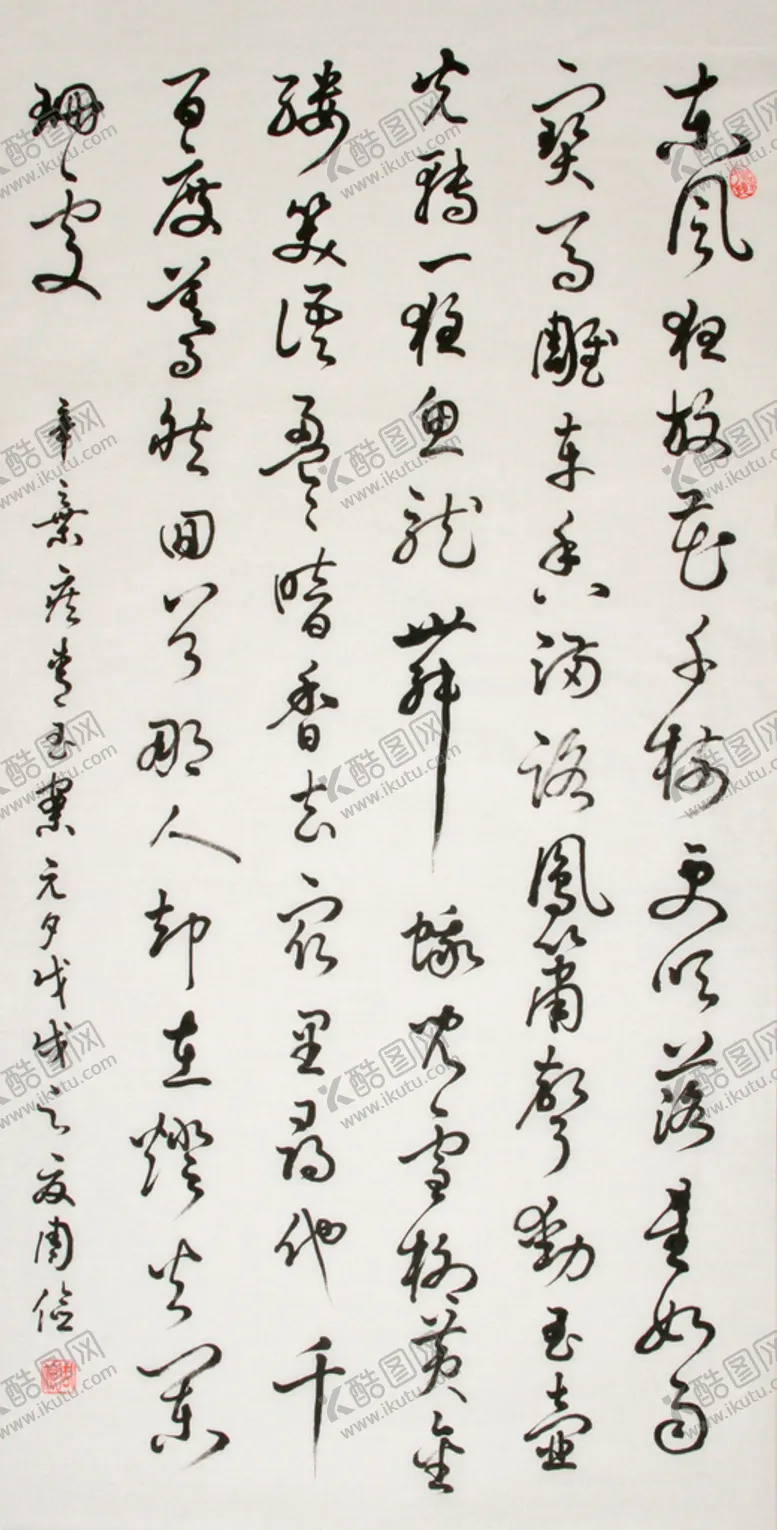 東風夜放花千樹更吹落星如雨
寶馬雕車香滿路鳳簫聲動玉壺
光轉一夜魚龍舞蛾兒雪柳黃金
縷笑語盈〻暗香去衆里尋他千
百度驀然回首那人却在燈火闌
珊處
辛棄疾青玉案元夕戊戌之夏周儉
酷图网
www.ikutu.com